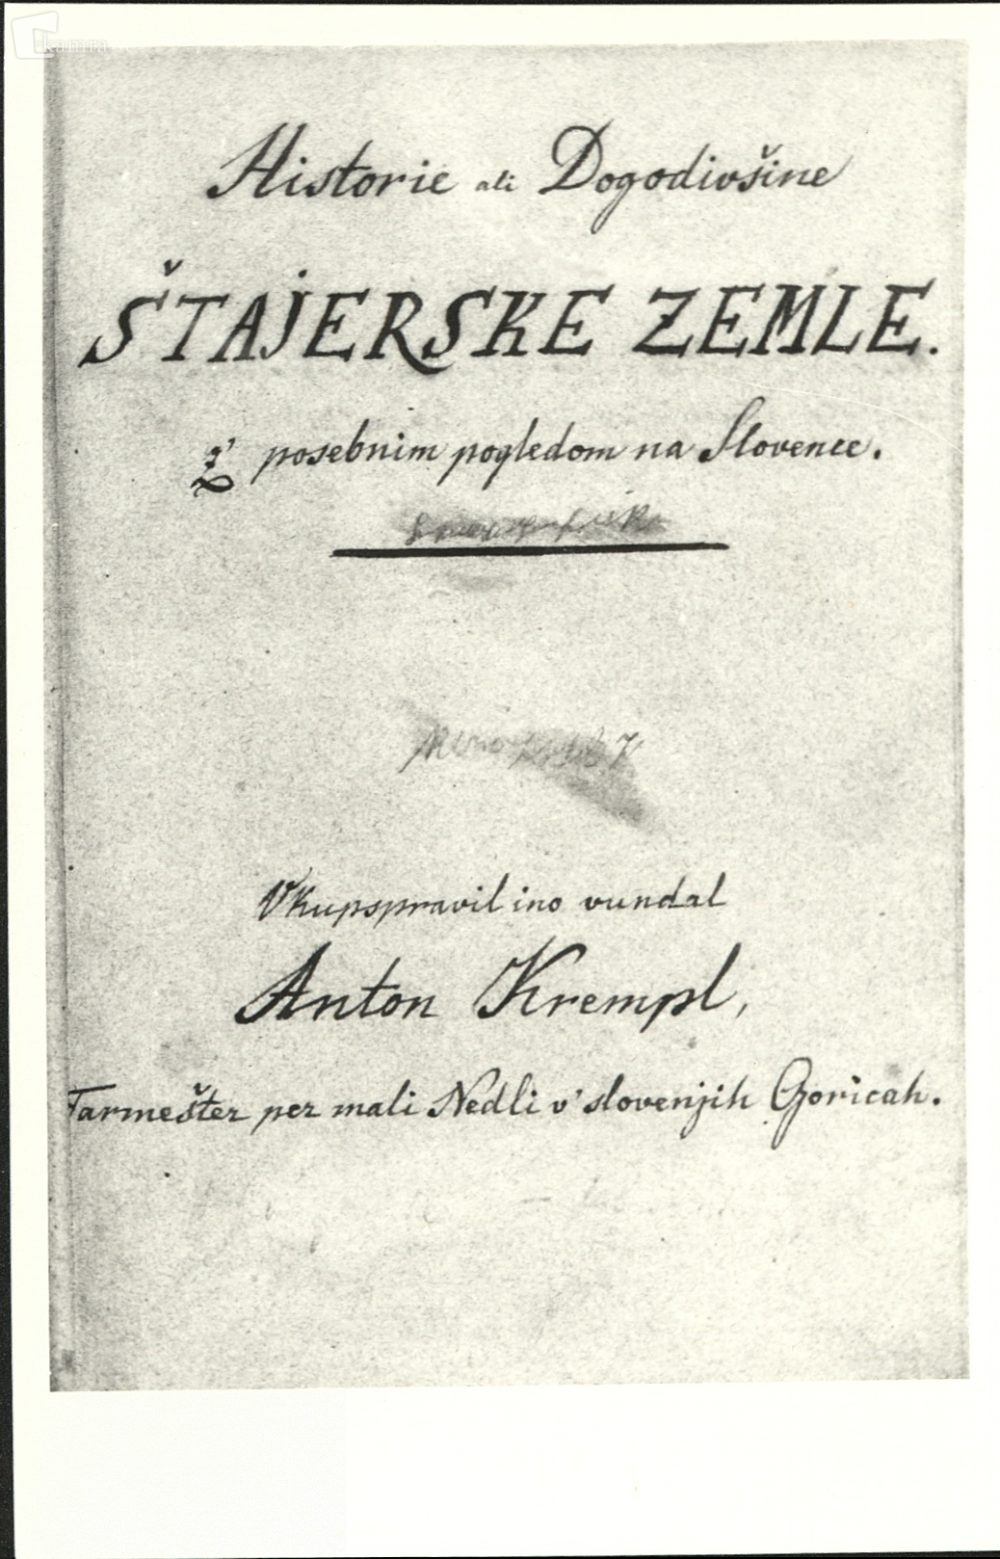 kamra
Historie ali Dogodivšine
ŠTAJERSKE ZEMLE.
z' posebnim pogledom na Slovence.
Vkupspravil ino vundal
Anton Krempl,
Farmešter per mali Nedli v' slovenjih Goricah.